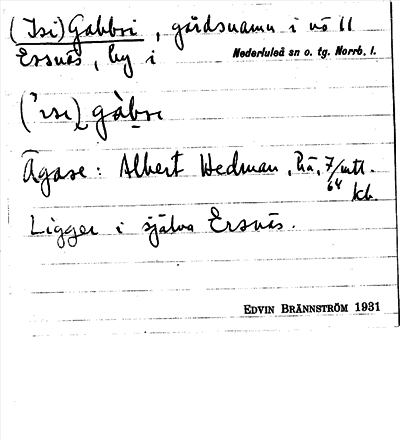 (Isi)Gabbri, gårdsnamn i nö 11
Ersnäs, by i Nederluleå sn o. tg. Norrb. l.
('ɪsi) gàbrɪ
Ägare: Albert Hedman, 7/64 mtl.
Ligger i själva Ersnäs.
EDVIN BRÄNNSTRÖM 1931